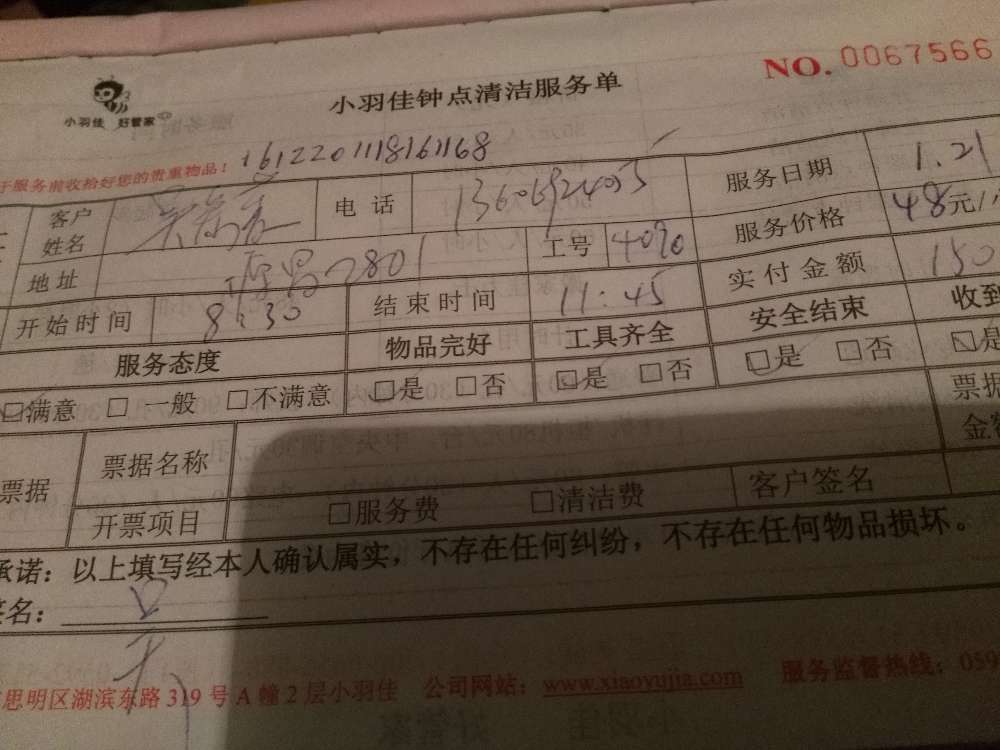 NO. 0067566
小羽佳钟点清洁服务单
小羽佳 好管家
于服务前收拾好您的贵重物品！
1612201118161168
客户姓名 电话 服务日期 1.21
地址 2801 工号 4090 服务价格 48元/
开始时间 8:30 结束时间 11:45 实付金额 150
服务态度 物品完好 工具齐全 安全结束 收到
□满意 □一般 □不满意 □是 □否 □是 □否 □是 □否 □是
票据 票据名称 票据
开票项目 □服务费 □清洁费 客户签名
承诺：以上填写经本人确认属实，不存在任何纠纷，不存在任何物品损坏。
签名：
思明区湖滨东路319号A幢2层小羽佳 公司网站：www.xiaoyujia.com 服务监督热线：059